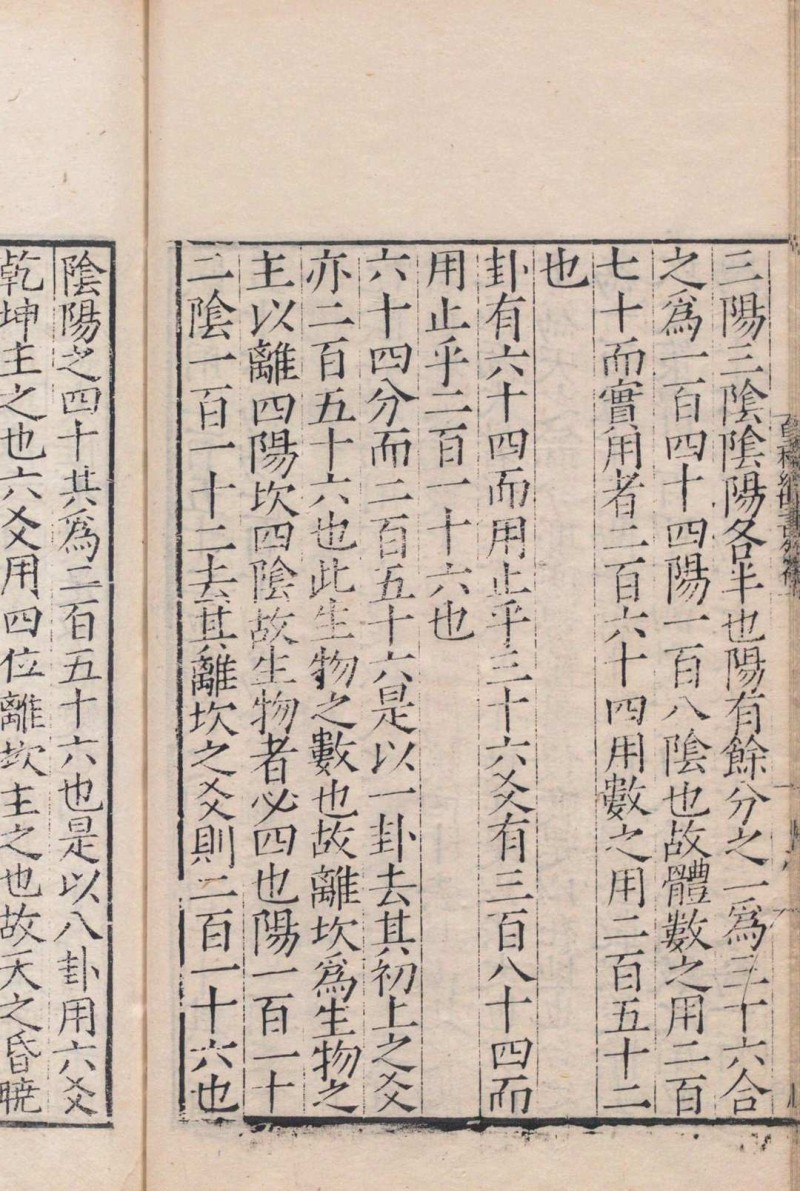 三陽三陰陰陽各半也陽有餘分之一為三十六合
之爲一百四十四陽一百八陰也故體數之用二百
七十而實用者二百六十四用數之用二百五十二
也
卦有六十四而用止乎三十六爻有三百八十四而
用止乎二百一十六也
六十四分而二百五十六是以一卦去其初上之爻
亦二百五十六也此生物之數也故離坎爲生物之
主以離四陽坎四陰故生物者必四也陽一百一十
二陰一百一十二去其離坎之爻則二百一十六也
陰陽之四十共爲二百五十六也是以八卦用六爻
乾坤主之也六爻用四位離坎主之也故天之昏曉